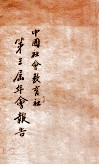 中國社會教育社
第三屆年會報告